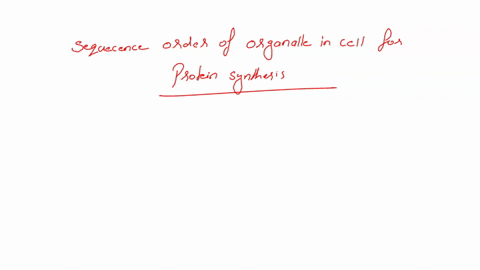 sequecence order of organalle in cell for
Protein synthesis